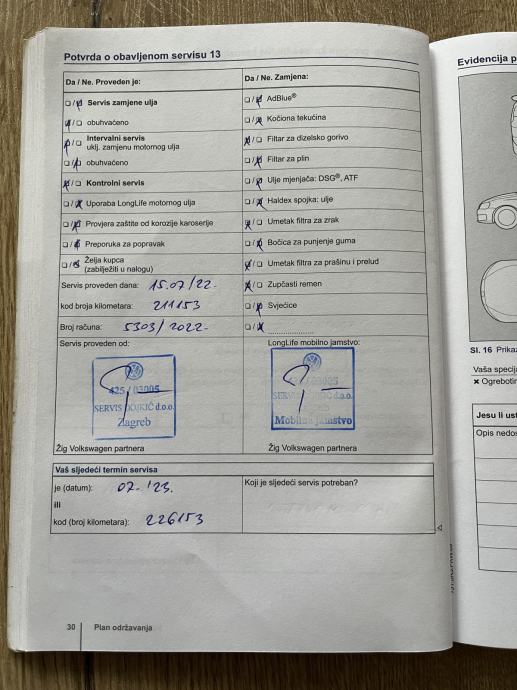 Potvrda o obavljenom servisu 13
Da / Ne. Proveden je:
❏ / ❏ Servis zamjene ulja
❏ / ❏ obuhvaćeno
❏ / ❏ Intervalni servis
uklj. zamjenu motornog ulja
❏ / ❏ obuhvaćeno
❏ / ❏ Kontrolni servis
❏ / ❏ Uporaba LongLife motornog ulja
❏ / ❏ Provjera zaštite od korozije karoserije
❏ / ❏ Preporuka za popravak
❏ / ❏ Želja kupca
(zabilježiti u nalogu)
Servis proveden dana: 15.07/22.
kod broja kilometara: 211153
Broj računa: 5303/2022.
Da / Ne. Zamjena:
❏ / ❏ AdBlue®
❏ / ❏ Kočiona tekućina
❏ / ❏ Filtar za dizelsko gorivo
❏ / ❏ Filtar za plin
❏ / ❏ Ulje mjenjača: DSG®, ATF
❏ / ❏ Haldex spojka: ulje
❏ / ❏ Umetak filtra za zrak
❏ / ❏ Bočica za punjenje guma
❏ / ❏ Umetak filtra za prašinu i prelud
❏ / ❏ Zupčasti remen
❏ / ❏ Svjećice
❏ / ❏ ....................
Servis proveden od:
425 / 03005
SERVIS BOJKIĆ d.o.o.
Zagreb
Žig Volkswagen partnera
LongLife mobilno jamstvo:
/ 03005
SERVIS d.o.o.
Mobilno jamstvo
Žig Volkswagen partnera
Vaš sljedeći termin servisa
je (datum): 07. '23.
ili
kod (broj kilometara): 226153
Koji je sljedeći servis potreban?
30 Plan održavanja
Evidencija p
Sl. 16 Prikaz
Vaša specij
✖ Ogrebotin
Jesu li ust
Opis nedos